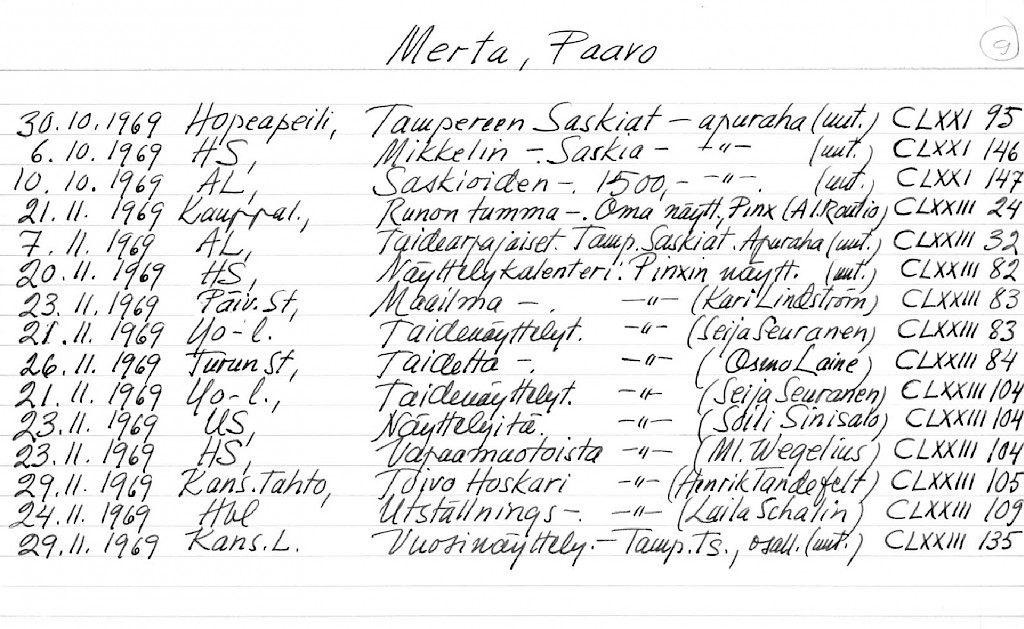 Merta, Paavo
9
30.10.1969 Hopeapeili, Tampereen Saskiat – apuraha (uut.) CLXXI 95
6.10.1969 HS, Mikkelin –. Saskia – –"– (uut.) CLXXI 146
10.10.1969 AL, Saskioiden –. 1500,- –"–. (uut.) CLXXI 147
21.11.1969 Kauppal., Runon tumma –. Oma näytt., Pinx (Al.Rautio) CLXXIII 24
7.11.1969 AL, Taidearpajaiset. Tamp. Saskiat. Apuraha (uut.) CLXXIII 32
20.11.1969 HS, Näyttelykalenteri: Pinxin näytt. (uut.) CLXXIII 82
23.11.1969 Päiv.St, Maailma –. –"– (Kari Lindström) CLXXIII 83
21.11.1969 Yo-l. Taidenäyttelyt. –"– (Seija Seuranen) CLXXIII 83
26.11.1969 Turun St, Taidetta –. –"– (Osmo Laine) CLXXIII 84
21.11.1969 Yo-l., Taidenäyttelyt. –"– (Seija Seuranen) CLXXIII 104
23.11.1969 US, Näyttelyitä. –"– (Soili Sinisalo) CLXXIII 104
23.11.1969 HS, Vapaamuotoista –"– (Ml. Wegelius) CLXXIII 104
29.11.1969 Kans.Tahto, Toivo Hoskari –"– (Henrik Tandefelt) CLXXIII 105
24.11.1969 Hbl Utställnings –. –"– (Laila Schalin) CLXXIII 109
29.11.1969 Kans.L. Vuosinäyttely. – Tamp.Ts., osall. (uut.) CLXXIII 135